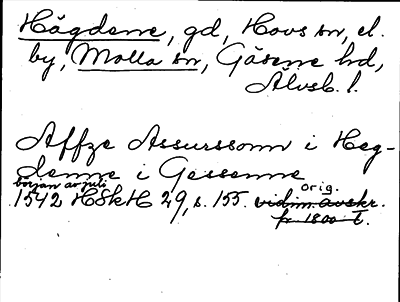 Hägdene, gd, Hovs sn, el.
by, Molla sn, Gäsene hd,
Älvsb. l.
Affze Assurssonn i Heg-
denne i Gessenne
början av juli orig.
1542 HSkH 29, s. 155. vidim. avskr.
fr. 1800-t.